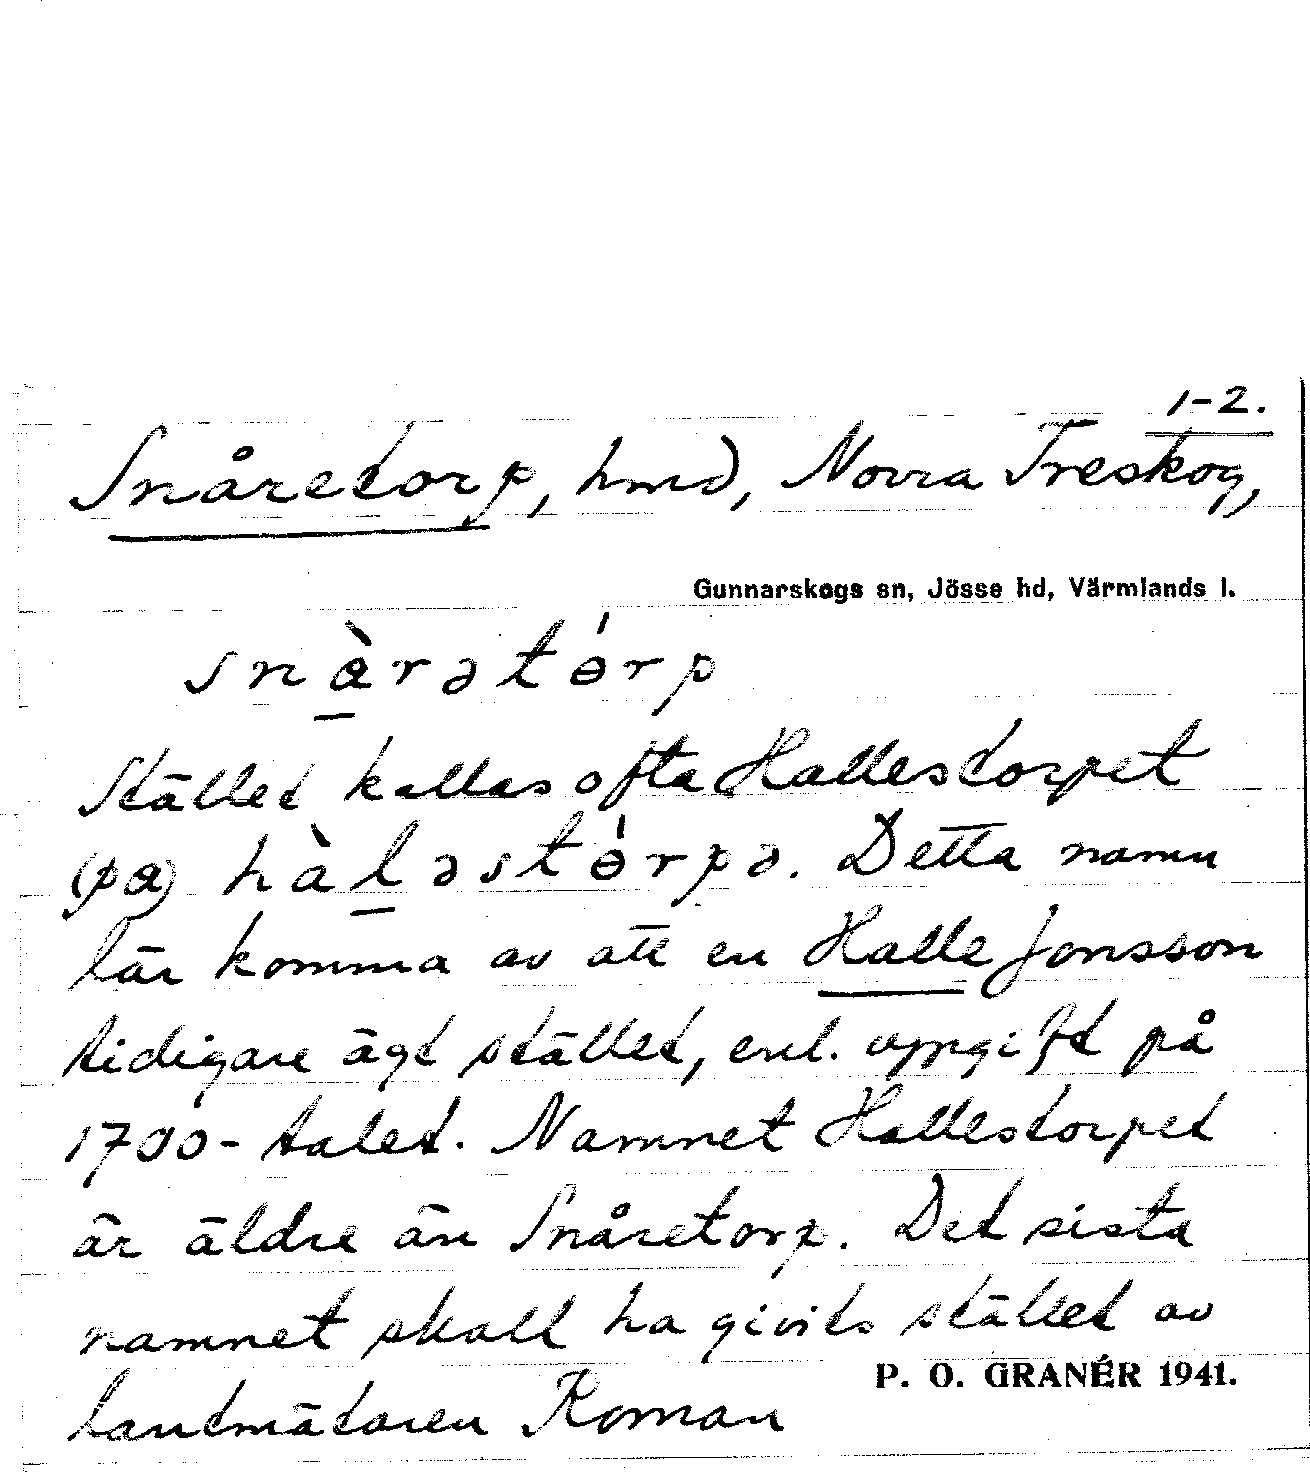 1-2.
Snåretorp, hmd, Norra Treskog,
Gunnarskogs sn, Jösse hd, Värmlands l.
snàrətɵ́rp
Stället kallas ofta Hallestorpet
(pa) hàləstɵ́rpə. Detta namn
lär komma av att en Halle Jonsson
tidigare ägt stället, enl. uppgift på
1700-talet. Namnet Hallestorpet
är äldre än Snåretorp. Det sista
namnet skall ha givits stället av
P. O. GRANÉR 1941.
lantmätaren Roman